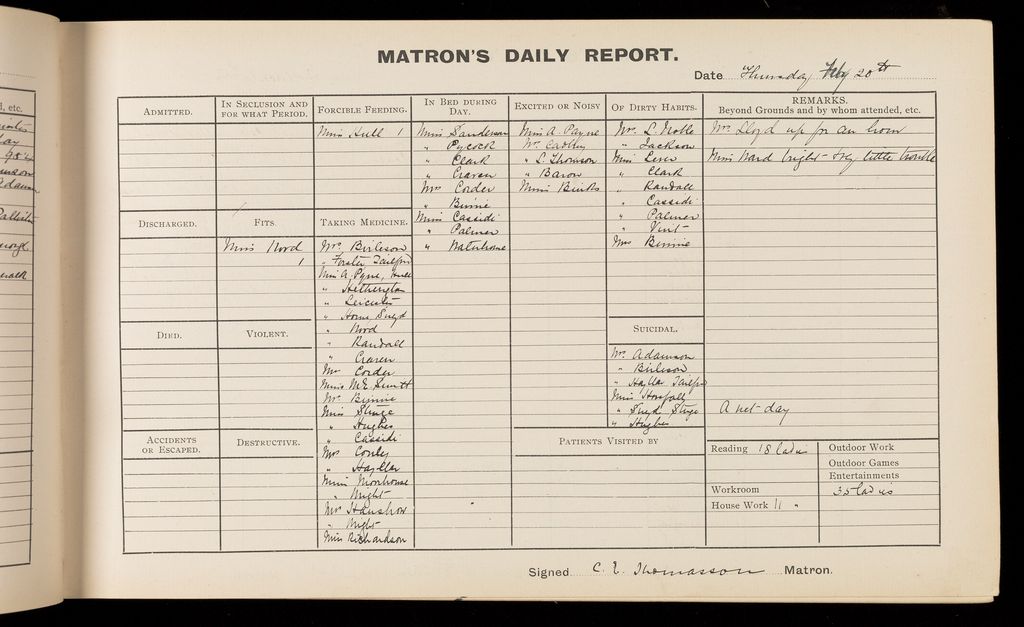 MATRON'S DAILY REPORT.
Date Thursday Feby 20th
ADMITTED.
IN SECLUSION AND FOR WHAT PERIOD.
FORCIBLE FEEDING.
Miss Hull 1
IN BED DURING DAY.
Miss Sanderson
" Pycock
" Clark
" Craven
Mrs Corder
" Binnie
Miss Cassidi
" Palmer
" Waterhouse
EXCITED OR NOISY
Miss A. Payne
Mrs Cadbury
" L. Thomson
" Baron
Miss Binks
OF DIRTY HABITS.
Mrs L. Noble
" Jackson
Miss Lever
" Clark
" Randall
" Cassidi
" Palmer
" Vint
Mrs Binnie
REMARKS.
Beyond Grounds and by whom attended, etc.
Mrs Lloyd up for an hour
Miss Ward bright - very little trouble
DISCHARGED.
FITS.
Miss Nord
1
TAKING MEDICINE.
Mrs Birleson
" Forster
Miss A. Pyne, Hull
" Hetherington
" Leicester
" Horne
" Nord
" Randall
" Craven
Mrs Corder
Miss M E
Mrs Binnie
Miss Sturge
" Hughes
" Cassidi
Mrs Conley
" Hayllar
Miss Moorhouse
" Wright
Mrs
" Wright
Miss Richardson
DIED.
VIOLENT.
SUICIDAL.
Mrs Adamson
" Birleson
" Hayllar
Miss Horsfall
" Sturge
" Hughes
A wet day
ACCIDENTS OR ESCAPED.
DESTRUCTIVE.
PATIENTS VISITED BY
Reading 18 ladies
Outdoor Work
Outdoor Games
Entertainments
Workroom
35 ladies
House Work 11 "
Signed C. E. Thomasson Matron.